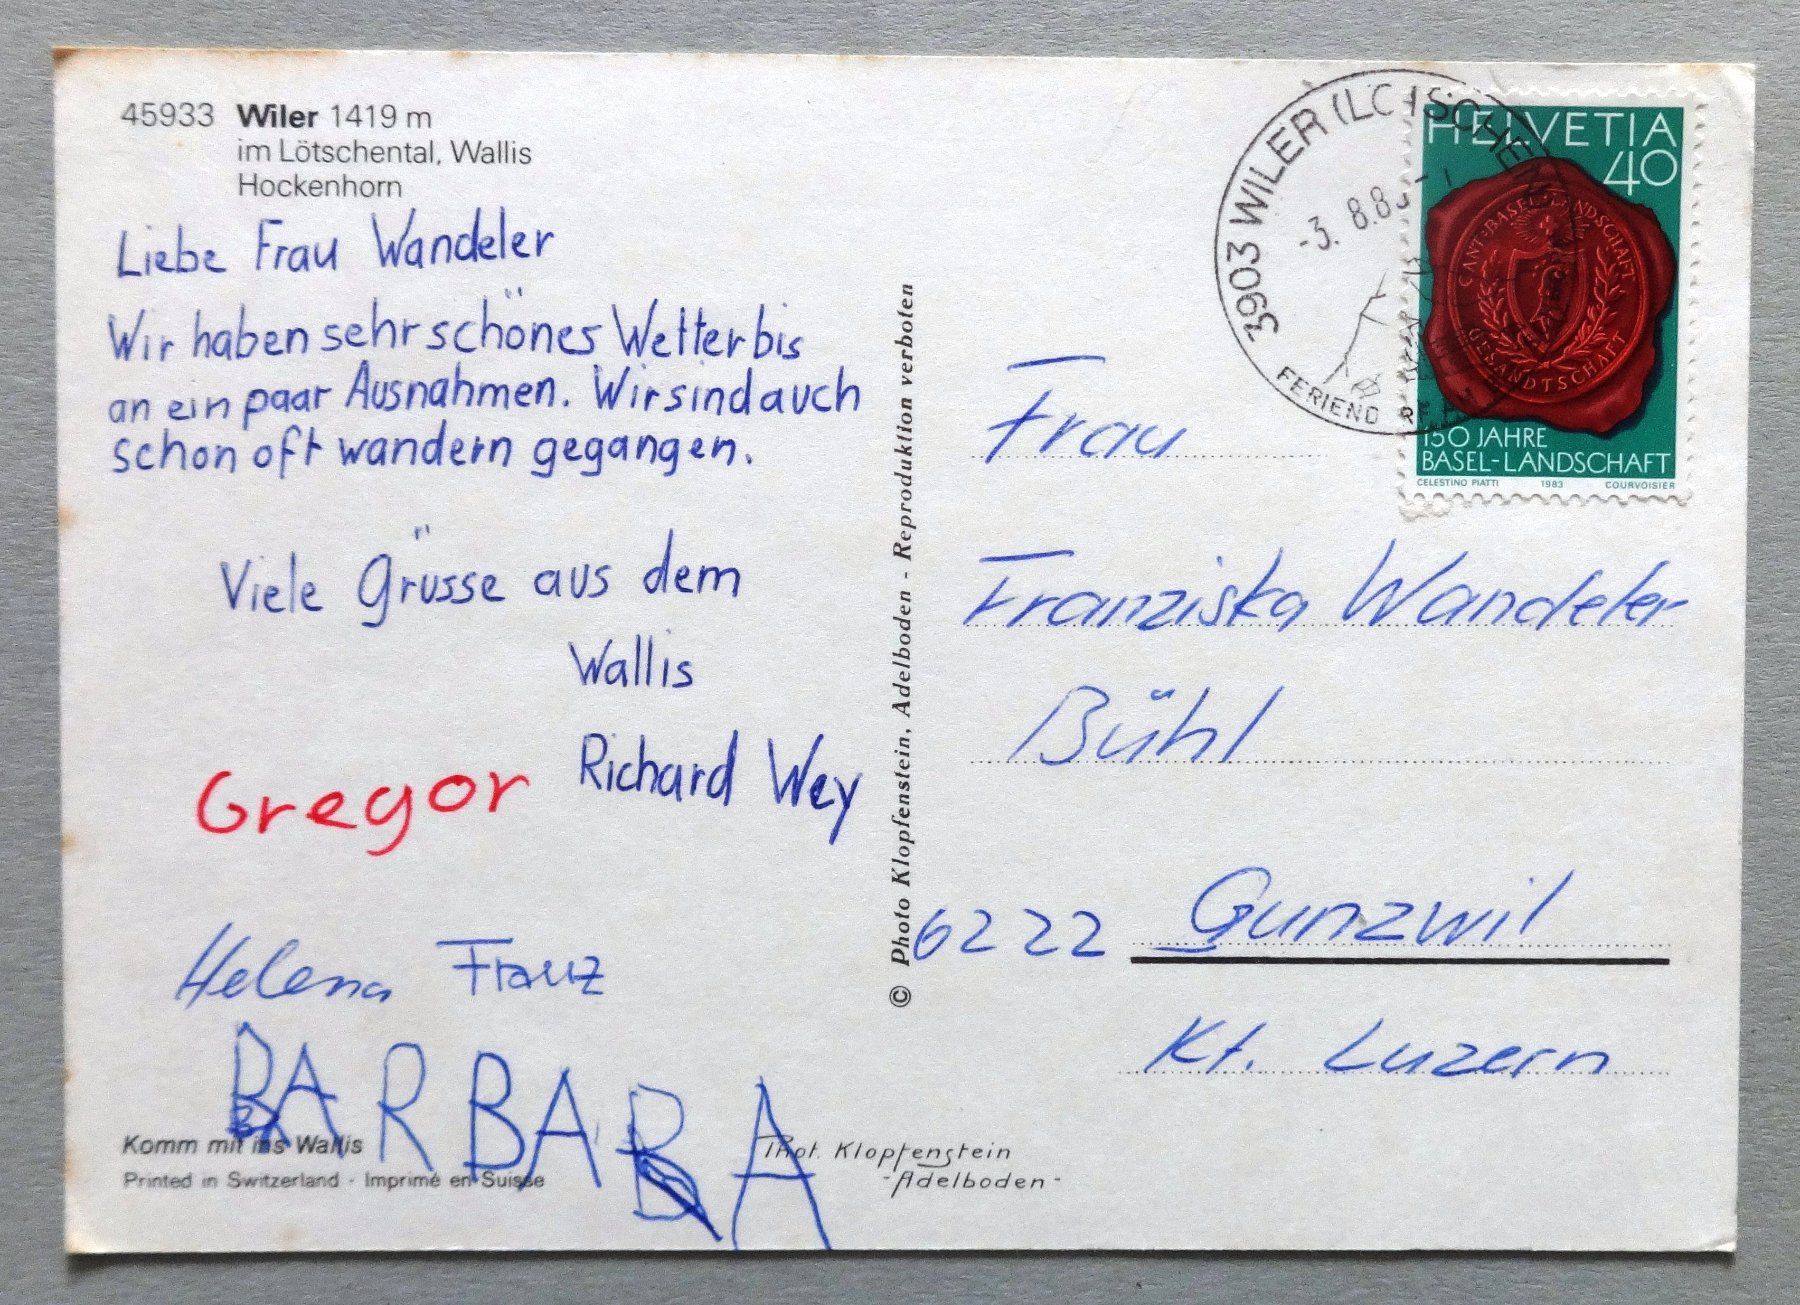 45933 Wiler 1419 m
im Lötschental, Wallis
Hockenhorn
Liebe Frau Wandeler
Wir haben sehr schönes Wetter bis
an ein paar Ausnahmen. Wir sind auch
schon oft wandern gegangen.
Viele Grüsse aus dem
Wallis
Richard Wey
Gregor
Helena Franz
BARBARA
Komm mit ins Wallis
Printed in Switzerland - Imprimé en Suisse
Phot. Klopfenstein
- Adelboden -
© Photo Klopfenstein, Adelboden - Reproduktion verboten
3903 WILER (LÖTSCHEN
-3. 8.8
FERIEND
HELVETIA
40
KANT. BASEL-LANDSCHAFT
GESANDTSCHAFT
150 JAHRE
BASEL-LANDSCHAFT
CELESTINO PIATTI 1983 COURVOISIER
Frau
Franziska Wandeler
Bühl
6222 Gunzwil
Kt. Luzern